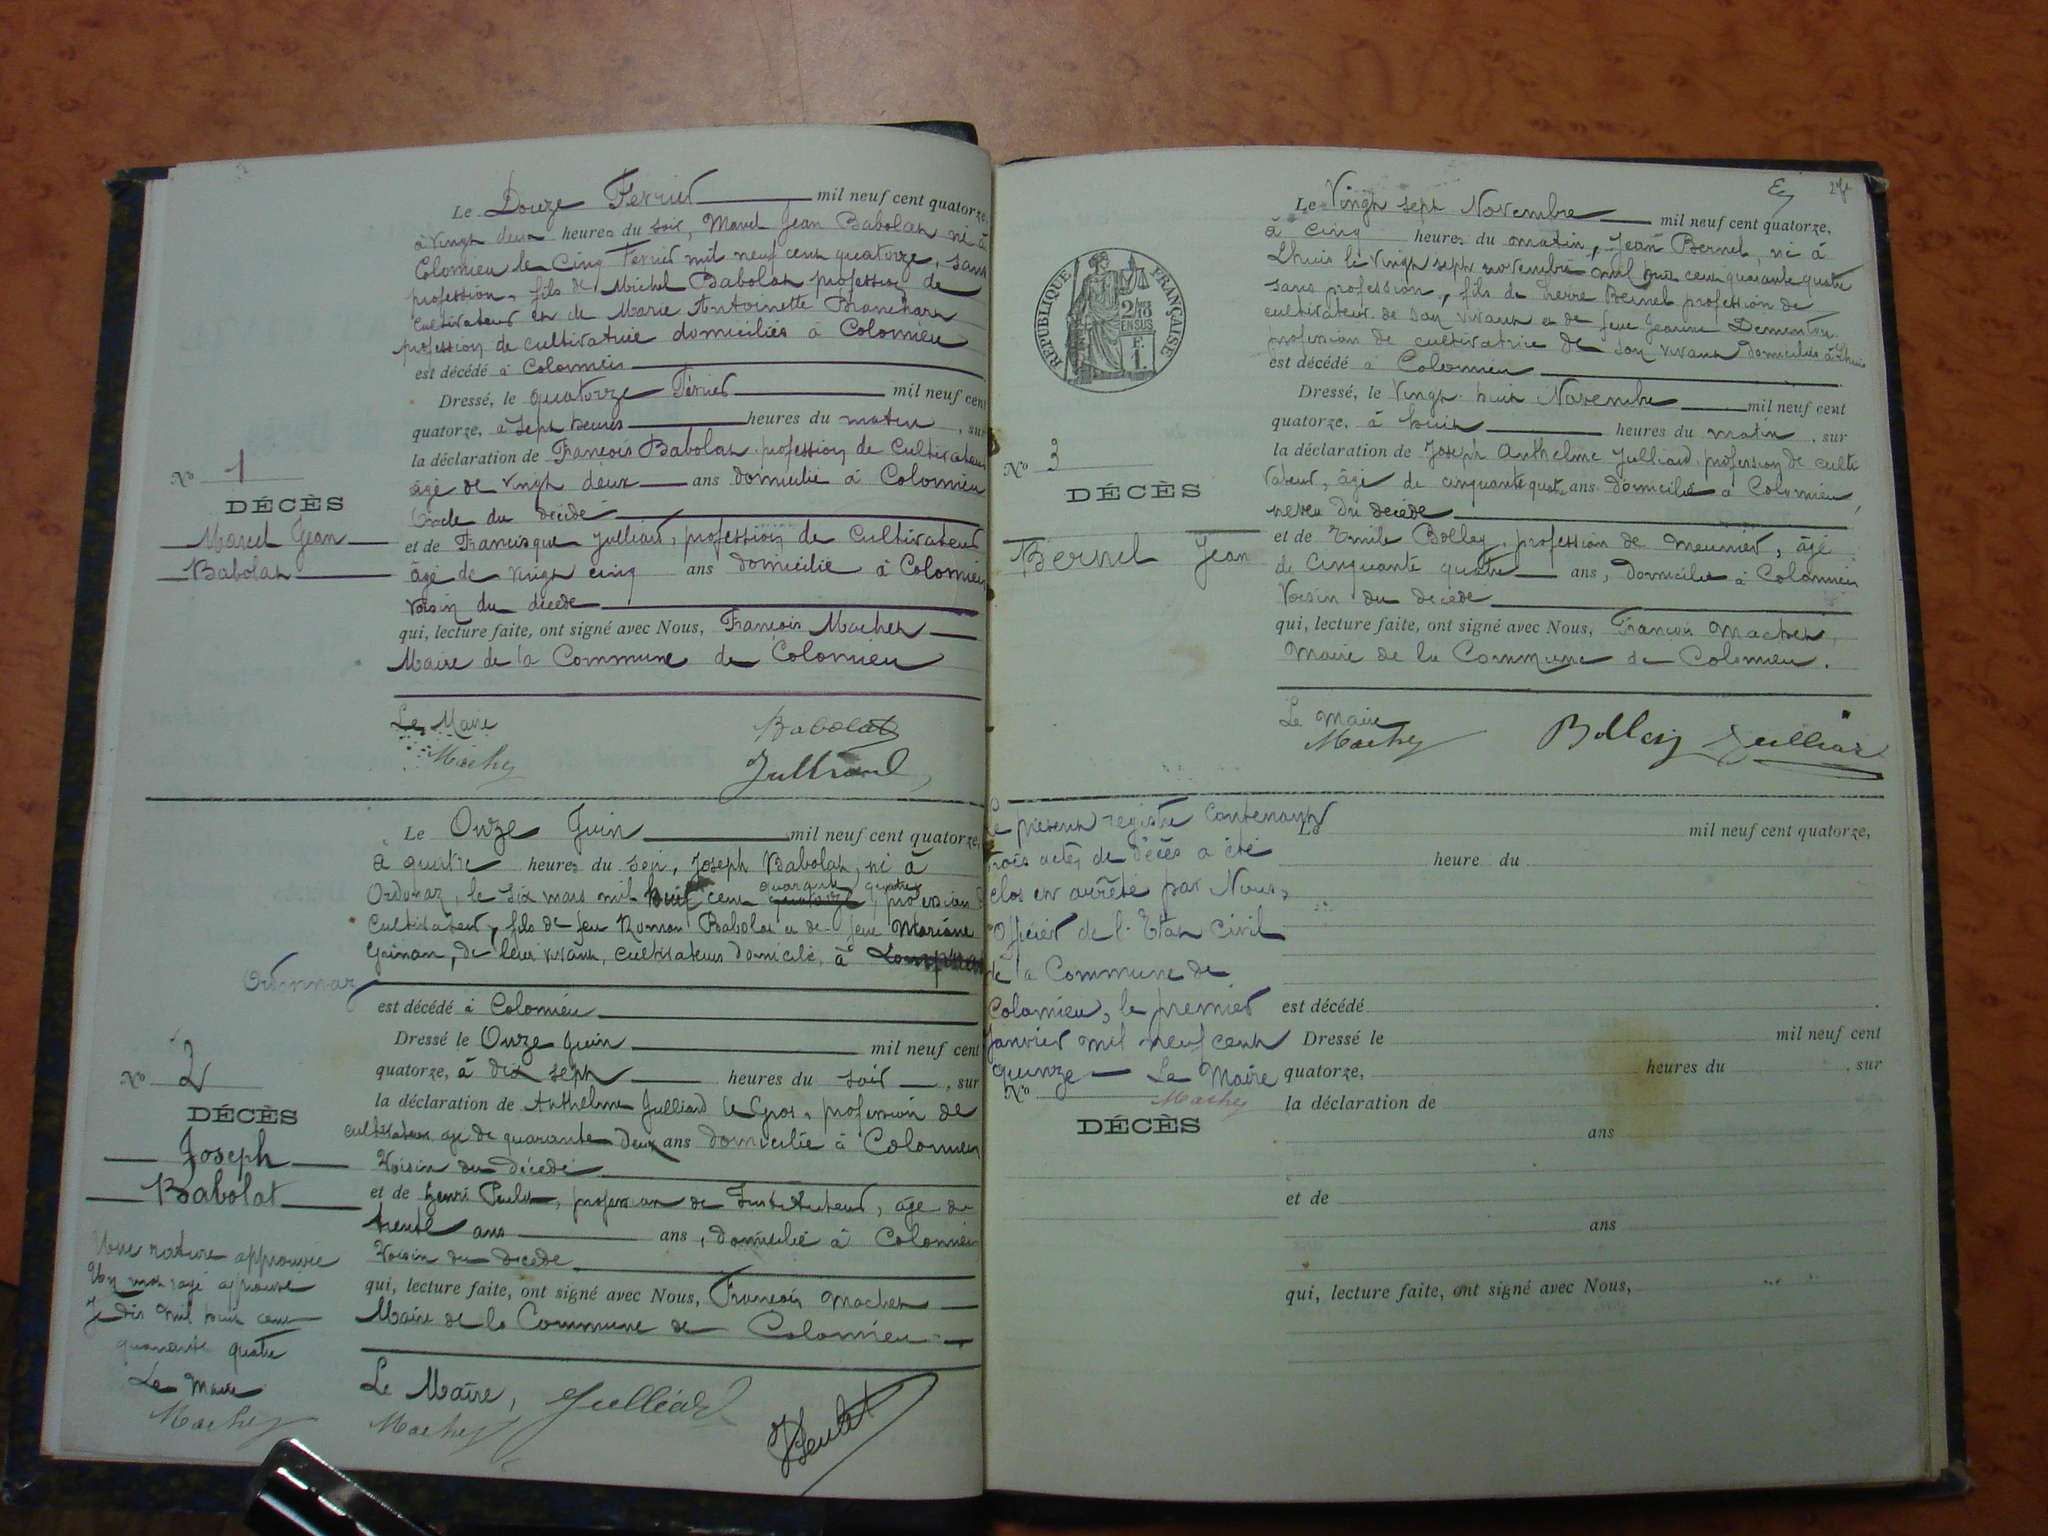 Le Douze Fevrier mil neuf cent quatorze,
à vingt deux heures du soir, Marcel Jean Babolat né à
Colomieu le cinq Fevrier mil neuf cent quatorze, sans
profession, fils de Michel Babolat profession de
cultivateur et de Marie Antoinette Blanchard
profession de cultivatrice domiciliés à Colomieu
est décédé à Colomieu
Dressé, le quatorze Février mil neuf cent
quatorze, à sept heures heures du matin, sur
la déclaration de François Babolat profession de Cultivateur
âgé de vingt deux ans domicilié à Colomieu
Oncle du décédé
et de Francisque Julliard, profession de Cultivateur
âgé de vingt cinq ans domicilié à Colomieu
Voisin du décédé
qui, lecture faite, ont signé avec Nous, François Machet
Maire de la Commune de Colomieu
No 1
DÉCÈS
Marcel Jean
Babolat
Le Maire
Babolat
Machet
Julliard
Le Onze Juin mil neuf cent quatorze,
à quatre heures du soir, Joseph Babolat, né à
Ordonaz, le six mars mil huit cent quatorze quarante quatre, profession
Cultivateur, fils de feu Babolat et de feue Mariane
de leur vivant, cultivateurs domicilié, à
Ordonnaz
est décédé à Colomieu
Dressé le Onze Juin mil neuf cent
quatorze, à dix sept heures du soir, sur
la déclaration de Anthelme Julliard le Gros, profession de
cultivateur, age de quarante Deux ans domicilié à Colomieu
Voisin du décédé
et de Henri profession de Instituteur, âgé de
trente ans ans, domicilié à Colomieu
Voisin du décédé
qui, lecture faite, ont signé avec Nous, François Machet
Maire de la Commune de Colomieu
No 2
DÉCÈS
Joseph
Babolat
Une rature approuvée
Un mot rayé approuvé
Je dis mil huit cent
quarante quatre
Le Maire
Machet
Le Maire, Julliard
Machet
2e
RÉPUBLIQUE FRANÇAISE
2/10
EN SUS
Le Vingt sept Novembre mil neuf cent quatorze,
à cinq heures du matin, Jean Bernel, né à
Lhuis le vingt sept novembre mil huit cent quarante quatre
sans profession, fils de Pierre Bernel profession de
cultivateur de son vivant et de feue Jeanne Dementon
profession de cultivatrice de son vivant domiciliés à Lhuis
est décédé à Colomieu
Dressé, le Vingt huit Novembre mil neuf cent
quatorze, à huit heures du matin, sur
la déclaration de Joseph Anthelme Julliard profession de culti
vateur, âgé de cinquante quatre ans domicilié à Colomieu,
neveu du décédé
et de Emile Bolley, profession de meunier, âgé
de Cinquante quatre ans, domicilié à Colomieu
Voisin du décédé
qui, lecture faite, ont signé avec Nous, François Machet,
Maire de la Commune de Colomieu.
No 3
DÉCÈS
Bernel Jean
Le Maire
Machet Bolley Julliard
Ce présent registre contenant
trois actes de décès a été
clos et arrêté par Nous,
Officier de l'Etat Civil
de la Commune de
Colomieu, le premier
Janvier mil neuf cent
quinze Le Maire
Machet
No
DÉCÈS
Le mil neuf cent quatorze,
heure du
est décédé
Dressé le mil neuf cent
quatorze, heures du , sur
la déclaration de
ans
et de
ans
qui, lecture faite, ont signé avec Nous,